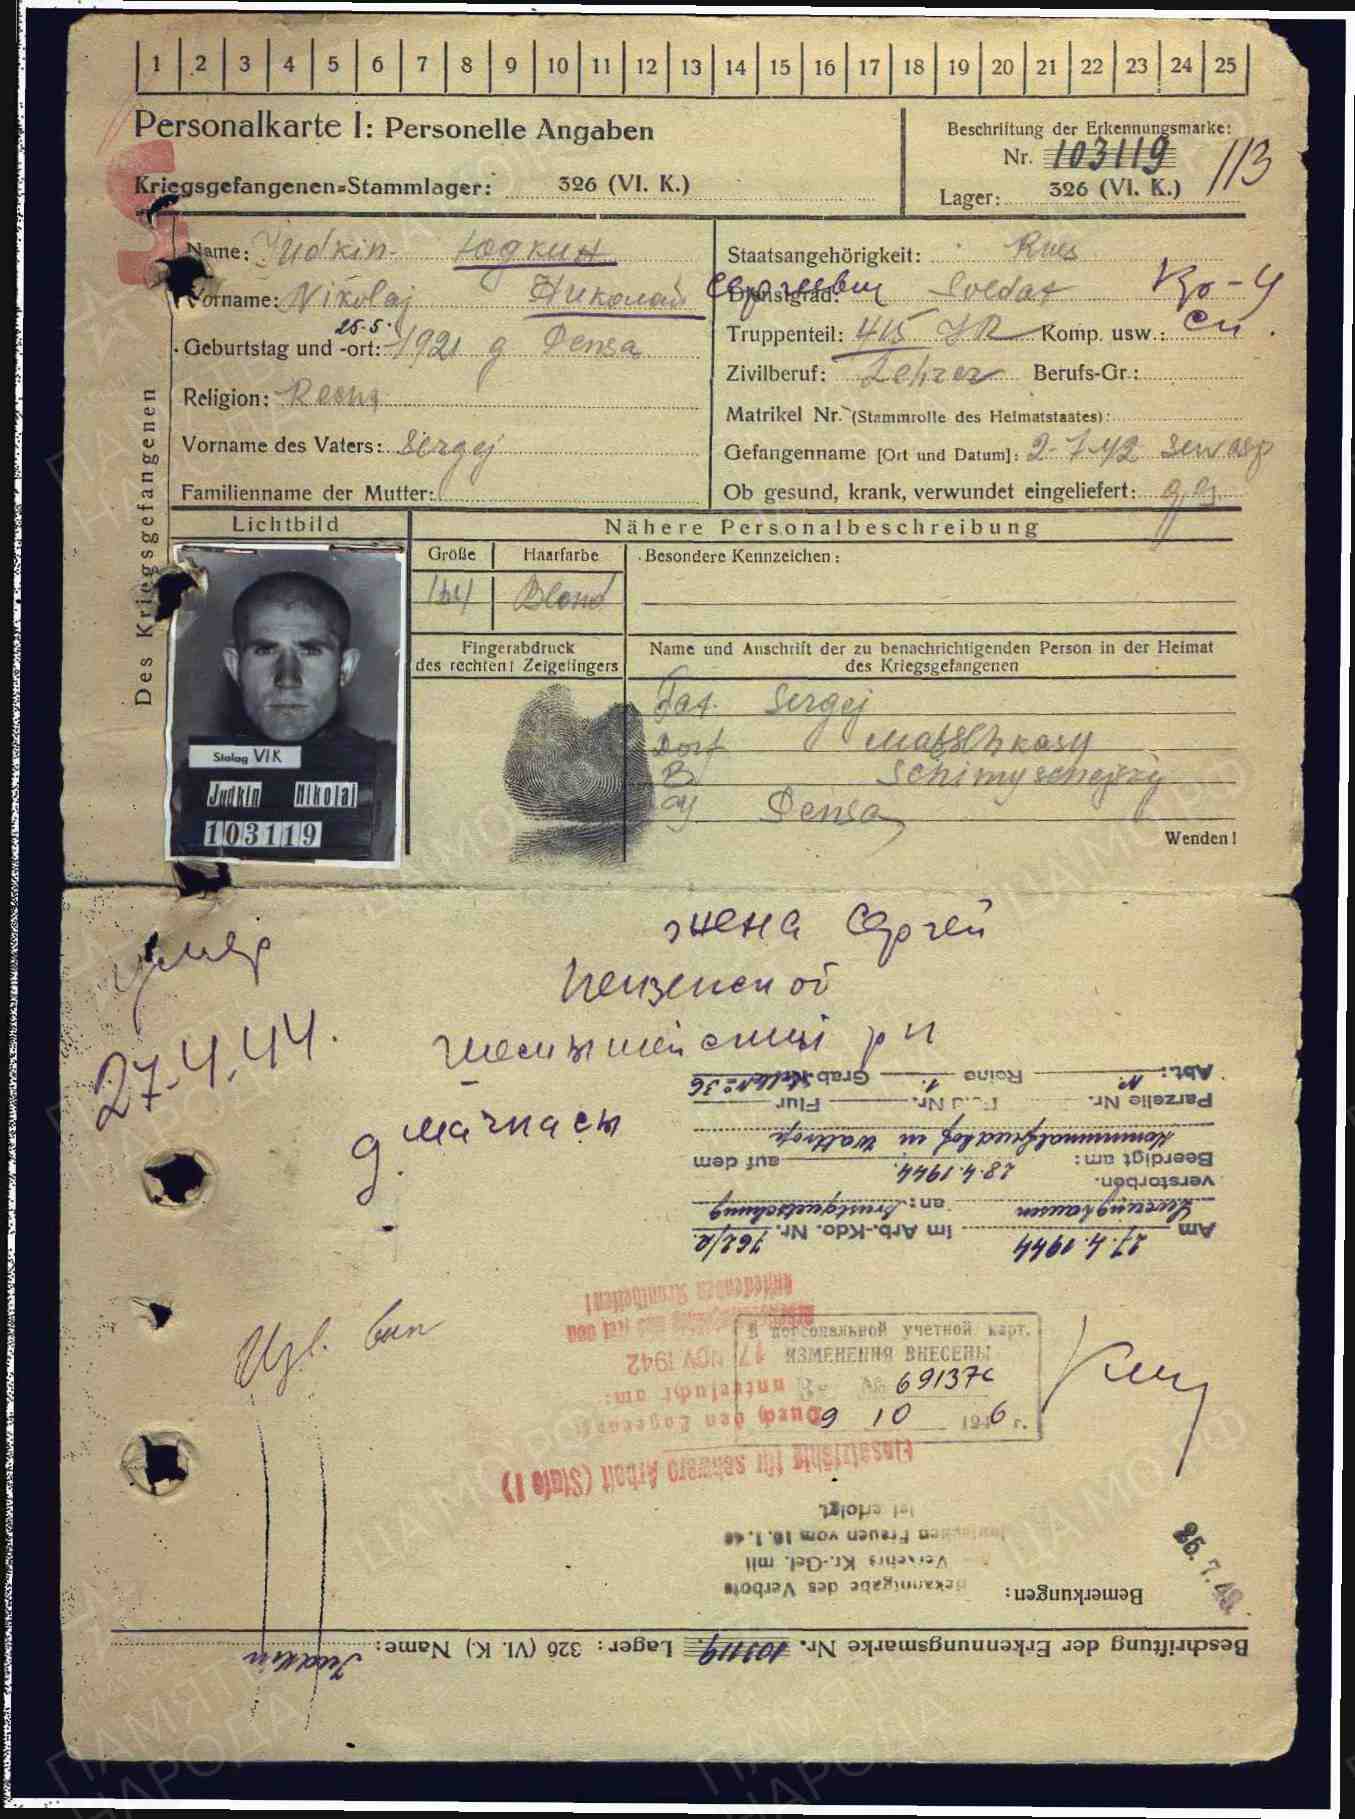 1 2 3 4 5 6 7 8 9 10 11 12 13 14 15 16 17 18 19 20 21 22 23 24 25
Personalkarte I: Personelle Angaben
Kriegsgefangenen-Stammlager: 326 (VI. K.)
Beschriftung der Erkennungsmarke:
Nr. 103119
113
Lager: 326 (VI. K.)
Des Kriegsgefangenen
Name: Judkin Юдкин
Vorname: Nikolaj Николай Сергеевич
25.5.
Geburtstag und -ort: 1921 g Pensa
Religion:
Vorname des Vaters: Sergej
Familienname der Mutter:
Staatsangehörigkeit: Russ
Dienstgrad: Soldat
Truppenteil: 415 JR Komp. usw.:
Zivilberuf: Lehrer Berufs-Gr.:
Matrikel Nr. (Stammrolle des Heimatstaates):
Gefangenname [Ort und Datum]: 2-7-42 Sewasp
Ob gesund, krank, verwundet eingeliefert: ges.
Lichtbild
Nähere Personalbeschreibung
Größe Haarfarbe Besondere Kennzeichen:
164 Blond
Fingerabdruck
des rechten! Zeigefingers
Name und Anschrift der zu benachrichtigenden Person in der Heimat
des Kriegsgefangenen
Fat. Sergej
Dorf Matschkasy
Schimyschejskij
Pensa
Wenden!
Stalag VIK
Judkin Nikolaj
103119
умер
27.4.44.
жена Сергей
Пензенской
шемышейский рн
д. мачкасы
Am 27.4.1944 im Arb.-Kdo. Nr. 762/a
Leveringhausen an: Brustquetschung
verstorben.
Beerdigt am: 28.4.1944. auf dem
Kommunalfriedhof in Waltrop
Parzelle Nr. Feld Nr. Flur
Abt.: Reihe 1. Grab Nr. 36
В персональной учетной карт.
ИЗМЕНЕНИЯ ВНЕСЕНЫ
69137с
9 10 1946 г.
ansteckenden Krankheiten!
17 NOV 1942
untersucht am:
Durch den Lagerarzt
Einsatzfähig für schwere Arbeit (Stufe I)
Bemerkungen: Bekanntgabe des Verbots
Verkehrs Kr.-Gef. mit
deutschen Frauen vom
ist erfolgt.
26.7.43
Beschriftung der Erkennungsmarke Nr. 103119 Lager: 326 (VI. K.) Name: Judkin